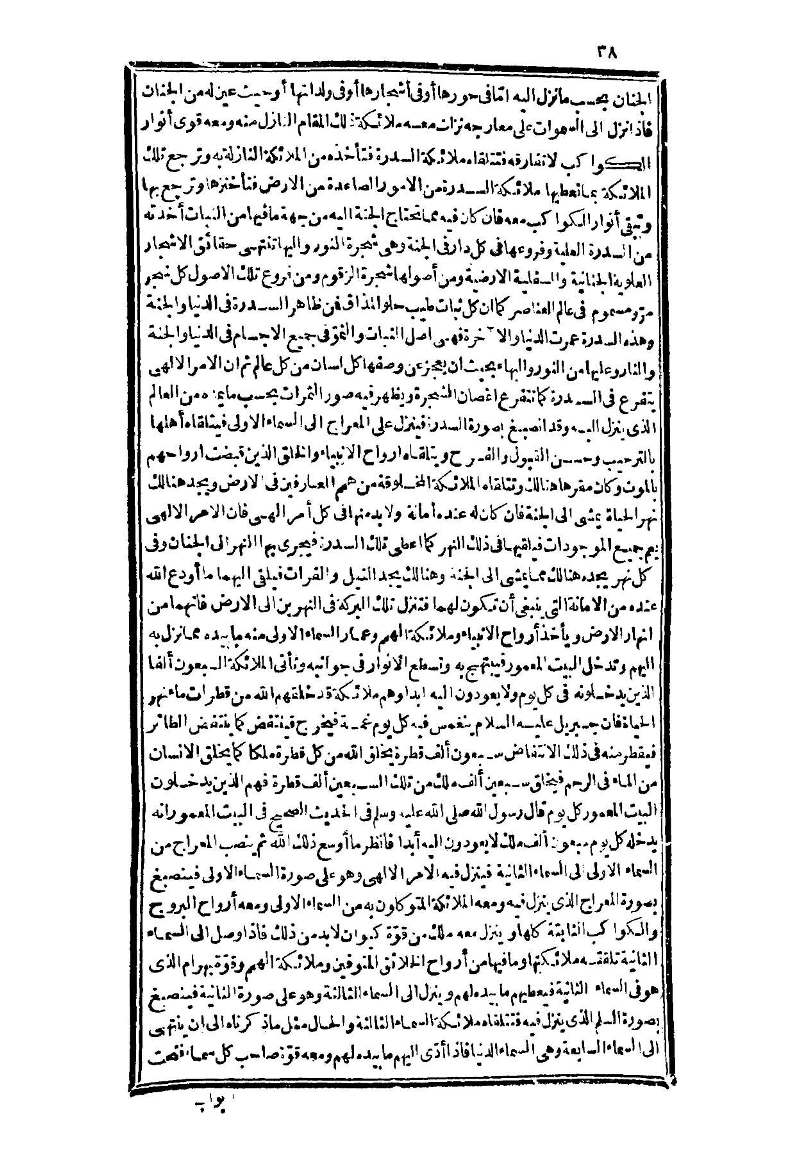 ٣٨
الجنان بحسب ما نزل اليه امّا فى حورها أو فى أشجارها أو فى ولدانها أو حيث عين له من الجنان
فاذا نزل الى السموات على معارجه نزات معه ملائكة ذلك المقام النازل منه ومعه قوى أنوار
الكواكب لا تفارقه فتتلقاه ملائكة السدرة فتأخذه من الملائكة النازلة به وترجع تلك
الملائكة بما تعطيها ملائكة السدرة من الامور الصاعدة من الارض فتأخذها وترجع بها
وتبقى أنوار الكواكب معه فان كان فيه مما تحتاج الجنة اليه من جهة ما فيها من النبات أخذته
من السدرة العلية وفروعها فى كل دار فى الجنة وهى شجرة النور واليها تنتهى حقائق الاشجار
العلوية الجنانية والسفلية الارضية ومن أصولها شجرة الزقوم ومن فروع تلك الاصول كل شجر
مرّ ومسموم فى عالم العناصر كما ان كل نبات طيب حلو المذاق فمن ظاهر السدرة فى الدنيا والجنة
وهذه السدرة عمرت الدنيا والآخرة فهى اصل النبات والنموّ فى جميع الاجسام فى الدنيا والجنة
والنار وعليها من النور والبهاء بحيث ان يعجز عن وصفها كل لسان من كل عالم ثم ان الامر الالهى
يتفرع فى السدرة كما تتفرع اغصان الشجرة ويظهر فيه صور الثمرات بحسب ما يمده من العالم
الذى ينزل اليه وقد انصبغ بصورة السدرة فينزل على المعراج الى السماء الاولى فيتلقاه أهلها
بالترحيب وحسن القبول والفرح ويتلقاه ارواح الانبياء والخلق الذين قبضت ارواحهم
بالموت وكان مقرها هنالك وتتلقاه الملائكة المخلوقة من همم العارفين فى الارض ويجد هنالك
نهر الحياة يمشى الى الجنة فان كان له عنده أمانة ولا بد منها فى كل أمر الهى فان الامر الالهى
يعم جميع الموجودات فيلقيها فى ذلك النهر كما اعطى تلك السدرة فيجرى بها النهر الى الجنان وفى
كل نهر يجده هنالك مما يمشى الى الجنة وهنالك يجد النيل والفرات فيلقى اليهما ما أودع الله
عنده من الامانة التى ينبغى أن تكون لهما فتنزل تلك البركة فى النهرين الى الارض فانهما من
انهار الارض ويأخذ أرواح الانبياء وملائكة الهمم وعمار السماء الاولى منه ما بيده مما نزل به
اليهم وتدخل البيت المعمور فيبتهج به وتسطع الانوار فى جوانبه وتأتى الملائكة السبعون ألفا
الذين يدخلونه فى كل يوم ولا يعودون اليه ابدا وهم ملائكة قد خلقهم الله من قطرات ماء نهر
الحياة فان جبريل عليه السلام ينغمس فيه كل يوم غمسة فيخرج فينتفض كما ينتفض الطائر
فيقطر منه فى ذلك الانتفاض سبعون ألف قطرة يخلق الله من كل قطرة ملكا كما يخلق الانسان
من الماء فى الرحم فيخلق سبعين ألف ملك من تلك السبعين ألف قطرة فهم الذين يدخلون
البيت المعمور كل يوم قال رسول الله صلى الله عليه وسلم فى الحديث الصحيح فى البيت المعمور انه
يدخله كل يوم سبعون ألف ملك لا يعودون اليه أبدا فانظر ما أوسع ذلك الله ثم ينصب المعراج من
السماء الاولى الى السماء الثانية فينزل فيه الامر الالهى وهو على صورة السماء الاولى فينصبغ
بصورة المعراج الذى ينزل فيه ومعه الملائكة المتوكلون به من السماء الاولى ومعه أرواح البروج
والكواكب الثابتة كلها وينزل معه ملك من قوّة كيوان لا بد من ذلك فاذا وصل الى السماء
الثانية تلقته ملائكتها وما فيها من أرواح الخلائق المتوفين وملائكة الهمم وقوّة بهرام الذى
هو فى السماء الثانية فيعطيهم ما بيده لهم وينزل الى السماء الثالثة وهو على صورة الثانية فينصبغ
بصورة السلم الذى ينزل فيه فتتلقاه ملائكة السماء الثالثة والحال مثل ما ذكرناه الى ان ينتهى
الى السماء السابعة وهى السماء الدنيا فاذا أدّى اليهم ما بيده لهم ومعه قوّة صاحب كل سماء فتحت
ابواب